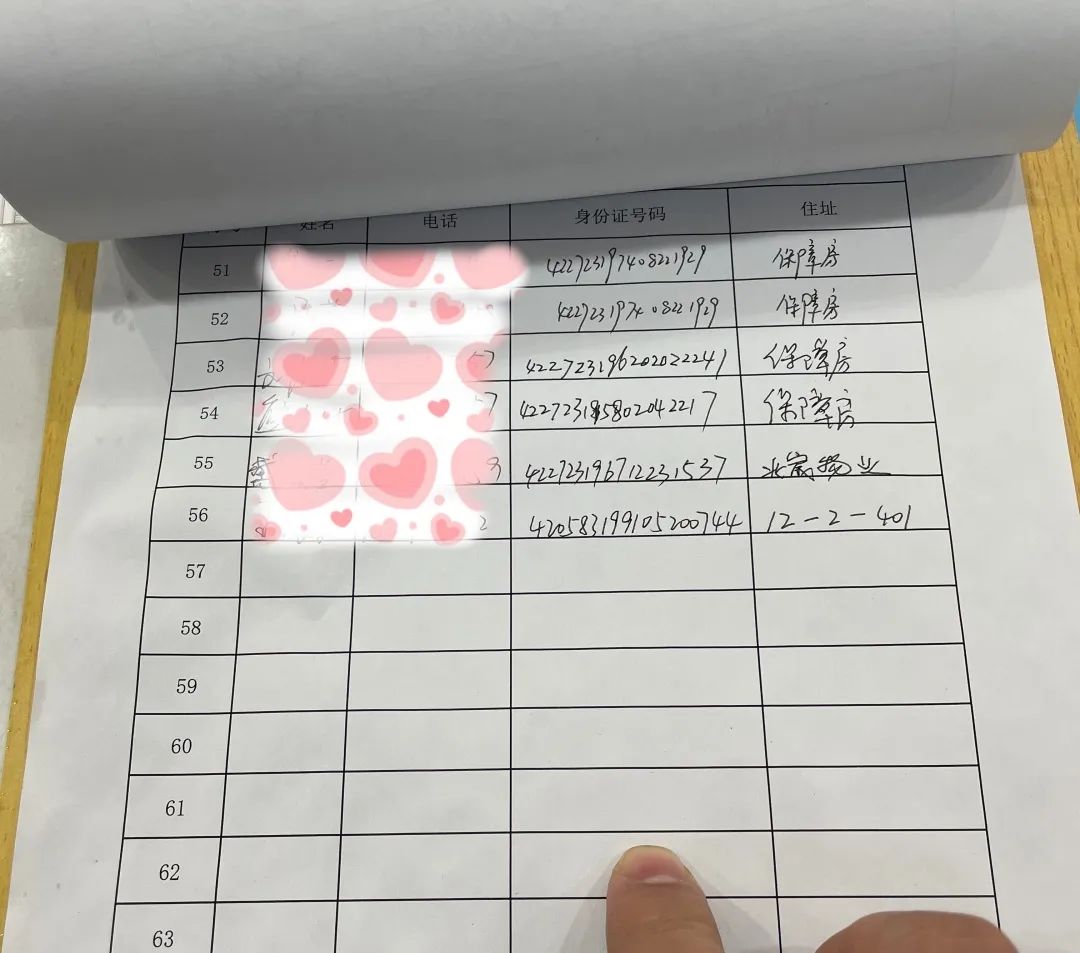 姓名 电话 身份证号码 住址
51 422723197408221929 保障房
52 422723197408221929 保障房
53 422723196202022241 保障房
54 422723195802042217 保障房
55 422723196712231537 物业
56 420583199105200744 12-2-401
57
58
59
60
61
62
63